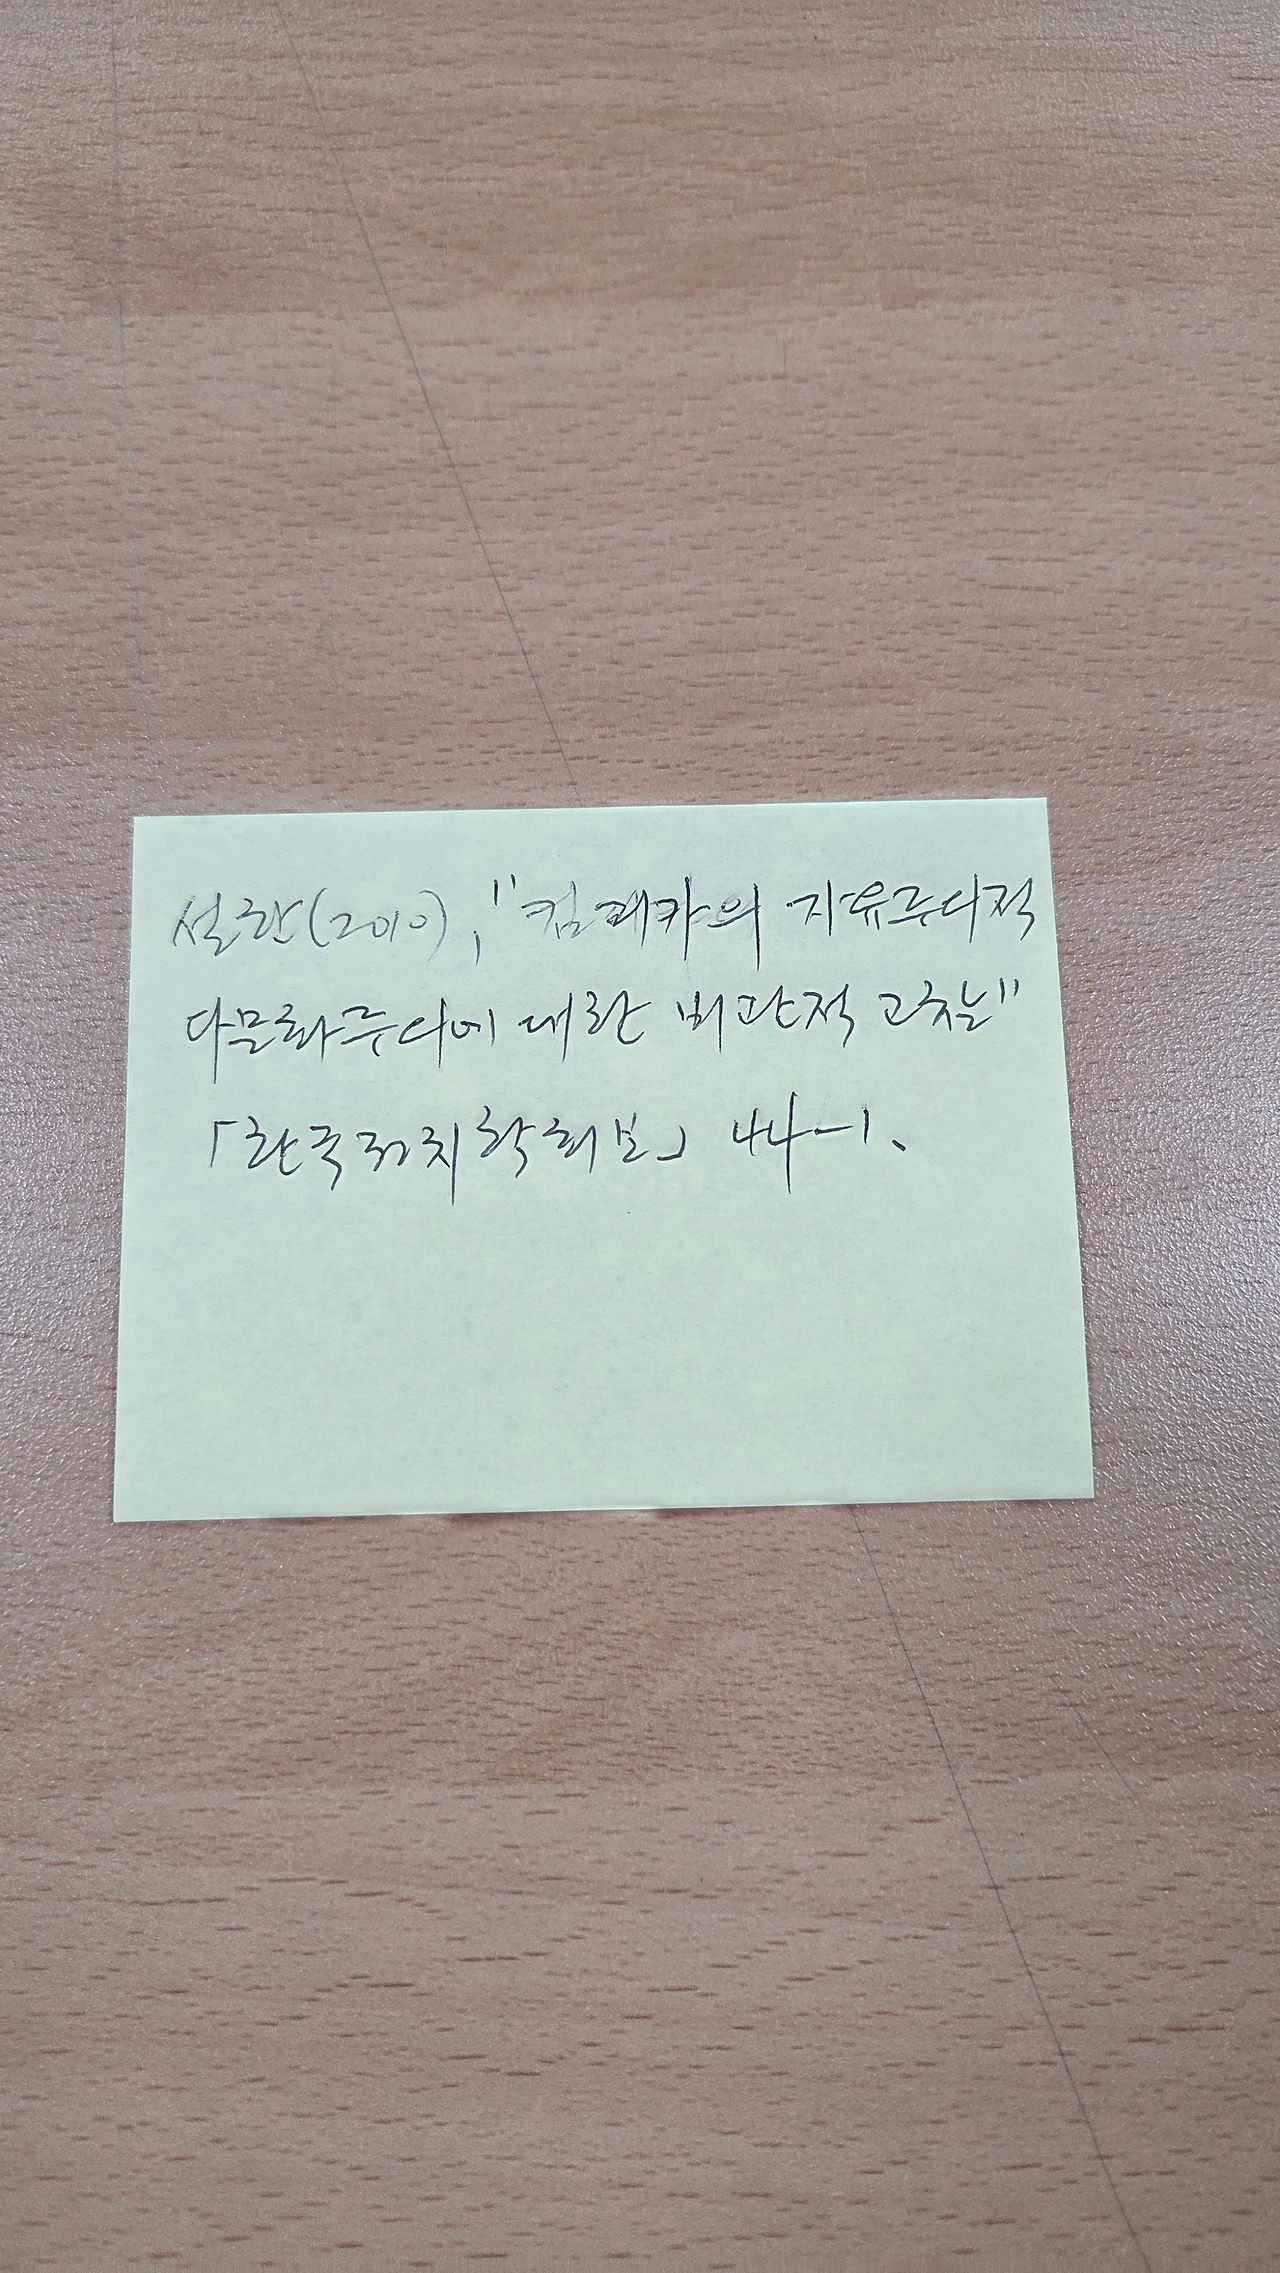 설한(2010), "킴리카의 자유주의적
다문화주의에 대한 비판적 고찰"
「한국정치학회보」 44-1.